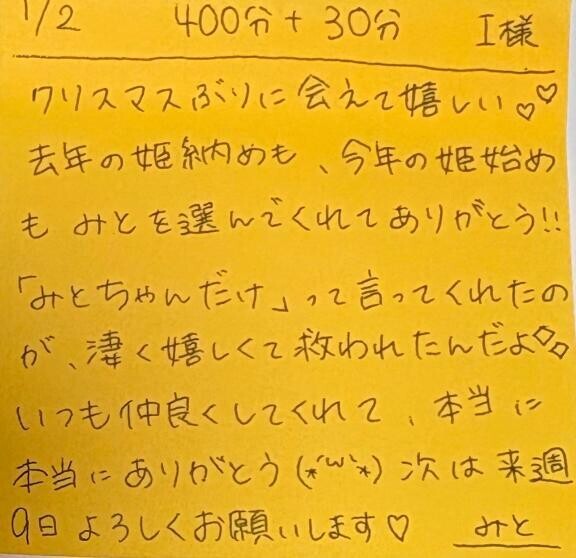 1/2 400分+30分 I様
クリスマスぶりに会えて嬉しい♡♡
去年の姫納めも、今年の姫始め
も みとを選んでくれてありがとう!!
「みとちゃんだけ」って言ってくれたの
が、凄く嬉しくて救われたんだよ◇◇
いつも仲良くしてくれて、本当に
本当にありがとう(*´ω`*) 次は来週
9日よろしくお願いします♡ みと